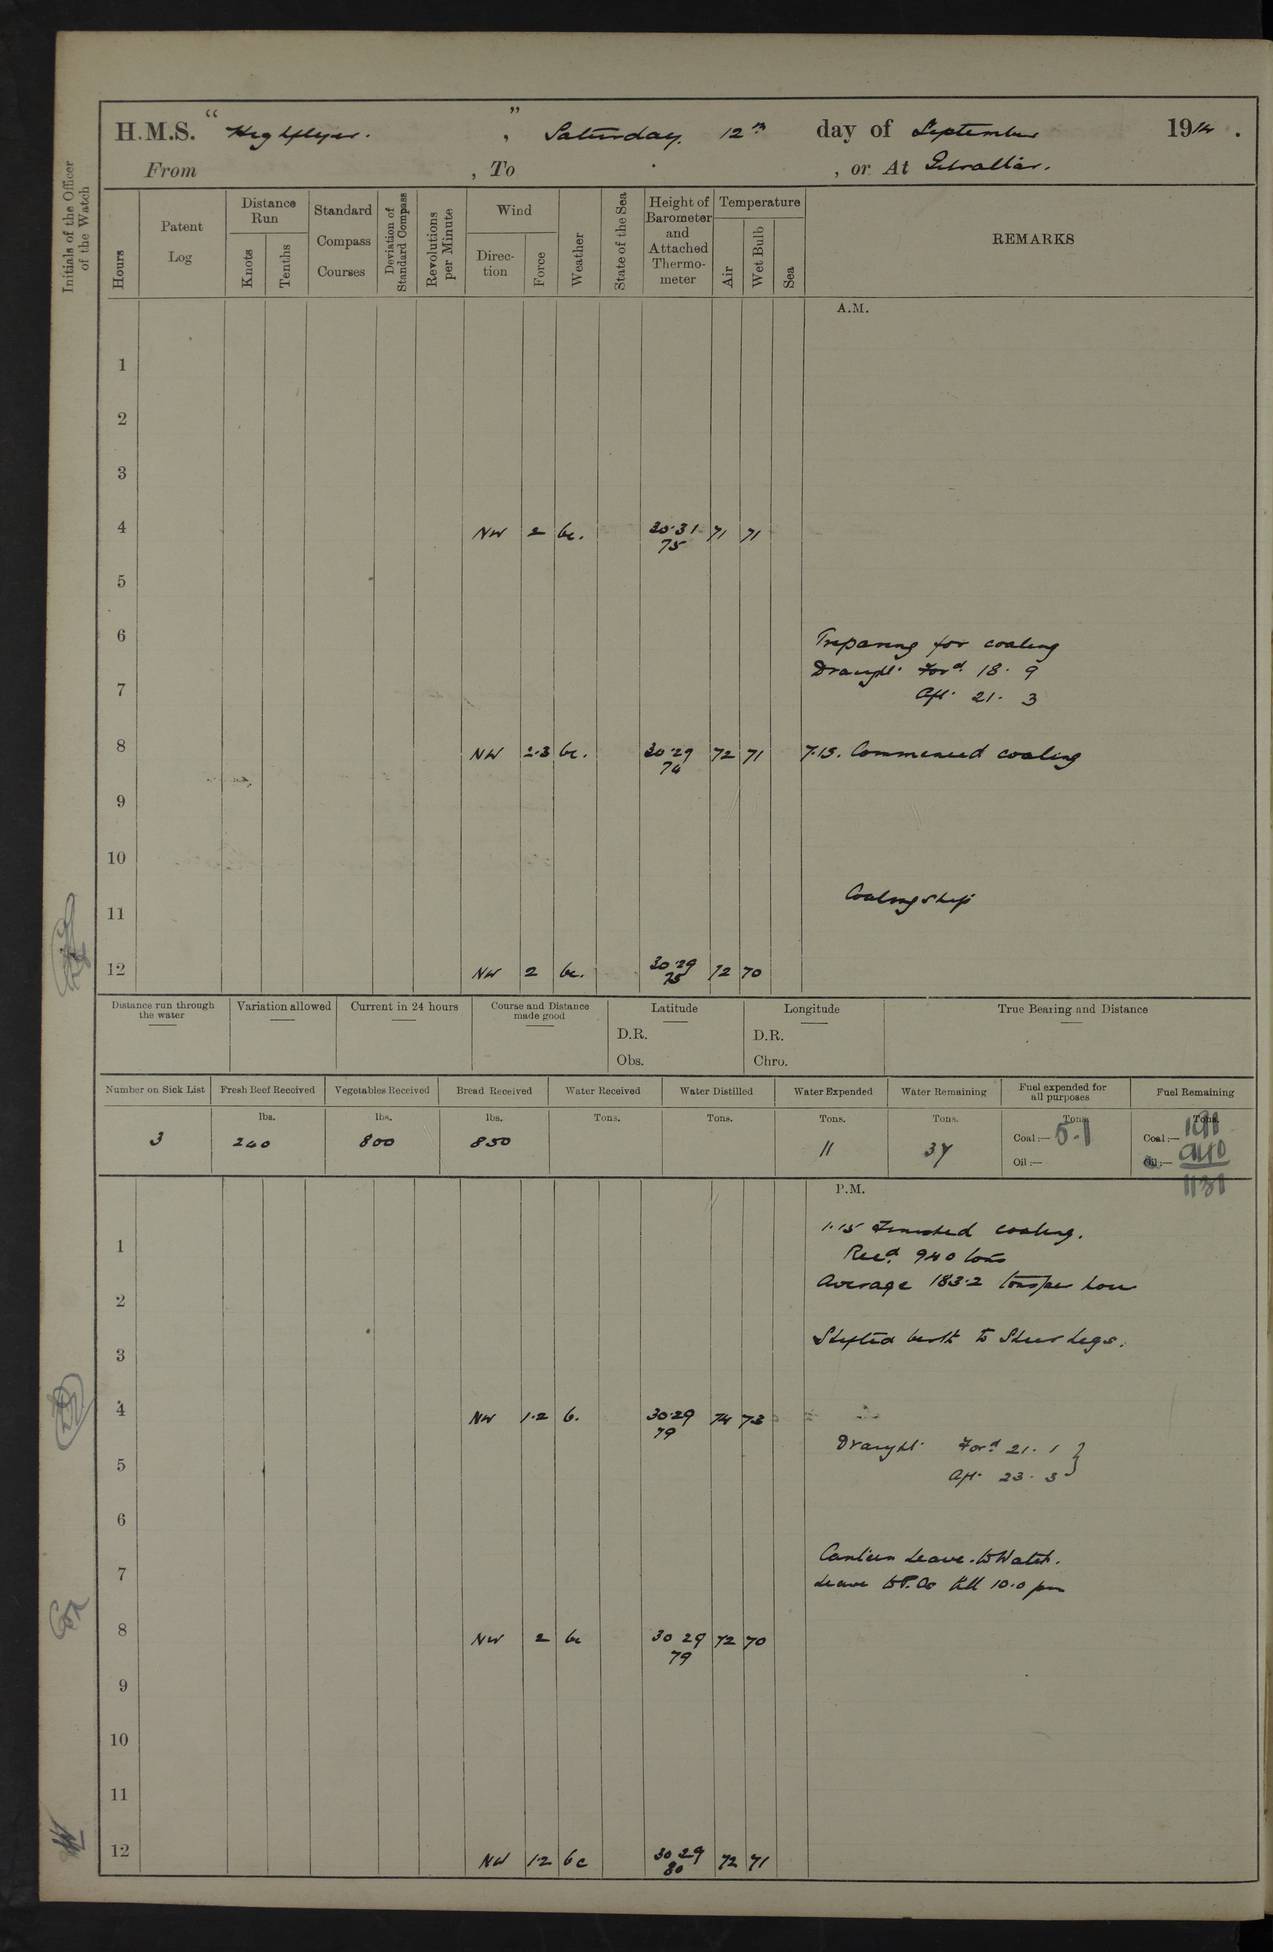 H.M.S. “ Highflyer. ”, Saturday 12th day of September 1914.
From , To , or At Gibraltar.
Initials of the Officer of the Watch
Hours
Patent Log
Distance Run
Knots
Tenths
Standard Compass Courses
Deviation of Standard Compass
Revolutions per Minute
Wind
Direction
Force
Weather
State of the Sea
Height of Barometer and Attached Thermometer
Temperature
Air
Wet Bulb
Sea
REMARKS
A.M.
1
2
3
4 NW 2 bc. 30.31 71 71
75
5
6
Preparing for coaling
Draught Ford. 18. 9
7
Aft. 21. 3
8 NW 2.3 bc. 30.29 72 71 7.15. Commenced coaling
74
9
10
Coaling ship
11
12 NW 2 bc. 30.29 72 70
75
Distance run through the water
Variation allowed
Current in 24 hours
Course and Distance made good
Latitude
D.R.
Obs.
Longitude
D.R.
Chro.
True Bearing and Distance
Number on Sick List Fresh Beef Received Vegetables Received Bread Received Water Received Water Distilled Water Expended Water Remaining Fuel expended for all purposes Fuel Remaining
lbs. lbs. lbs. Tons. Tons. Tons. Tons. Tons. Tons.
3 240 800 850 11 37 Coal:— 5.1 Coal:— 191
Oil:— Oil:— 940
1131
P.M.
1.15 Finished coaling.
1
Recd. 940 tons
Average 183.2 tons per hour
2
Shifted berth to Sheer Legs.
3
4 NW 1.2 b. 30.29 74 73
79
Draught Ford. 21. 1
5
Aft. 23. 3
6
Canteen Leave. to Watch.
7
Leave to P.Os till 10.0 pm
8 NW 2 bc 30 29 72 70
79
9
10
11
12 NW 1.2 bc 30 29 72 71
80